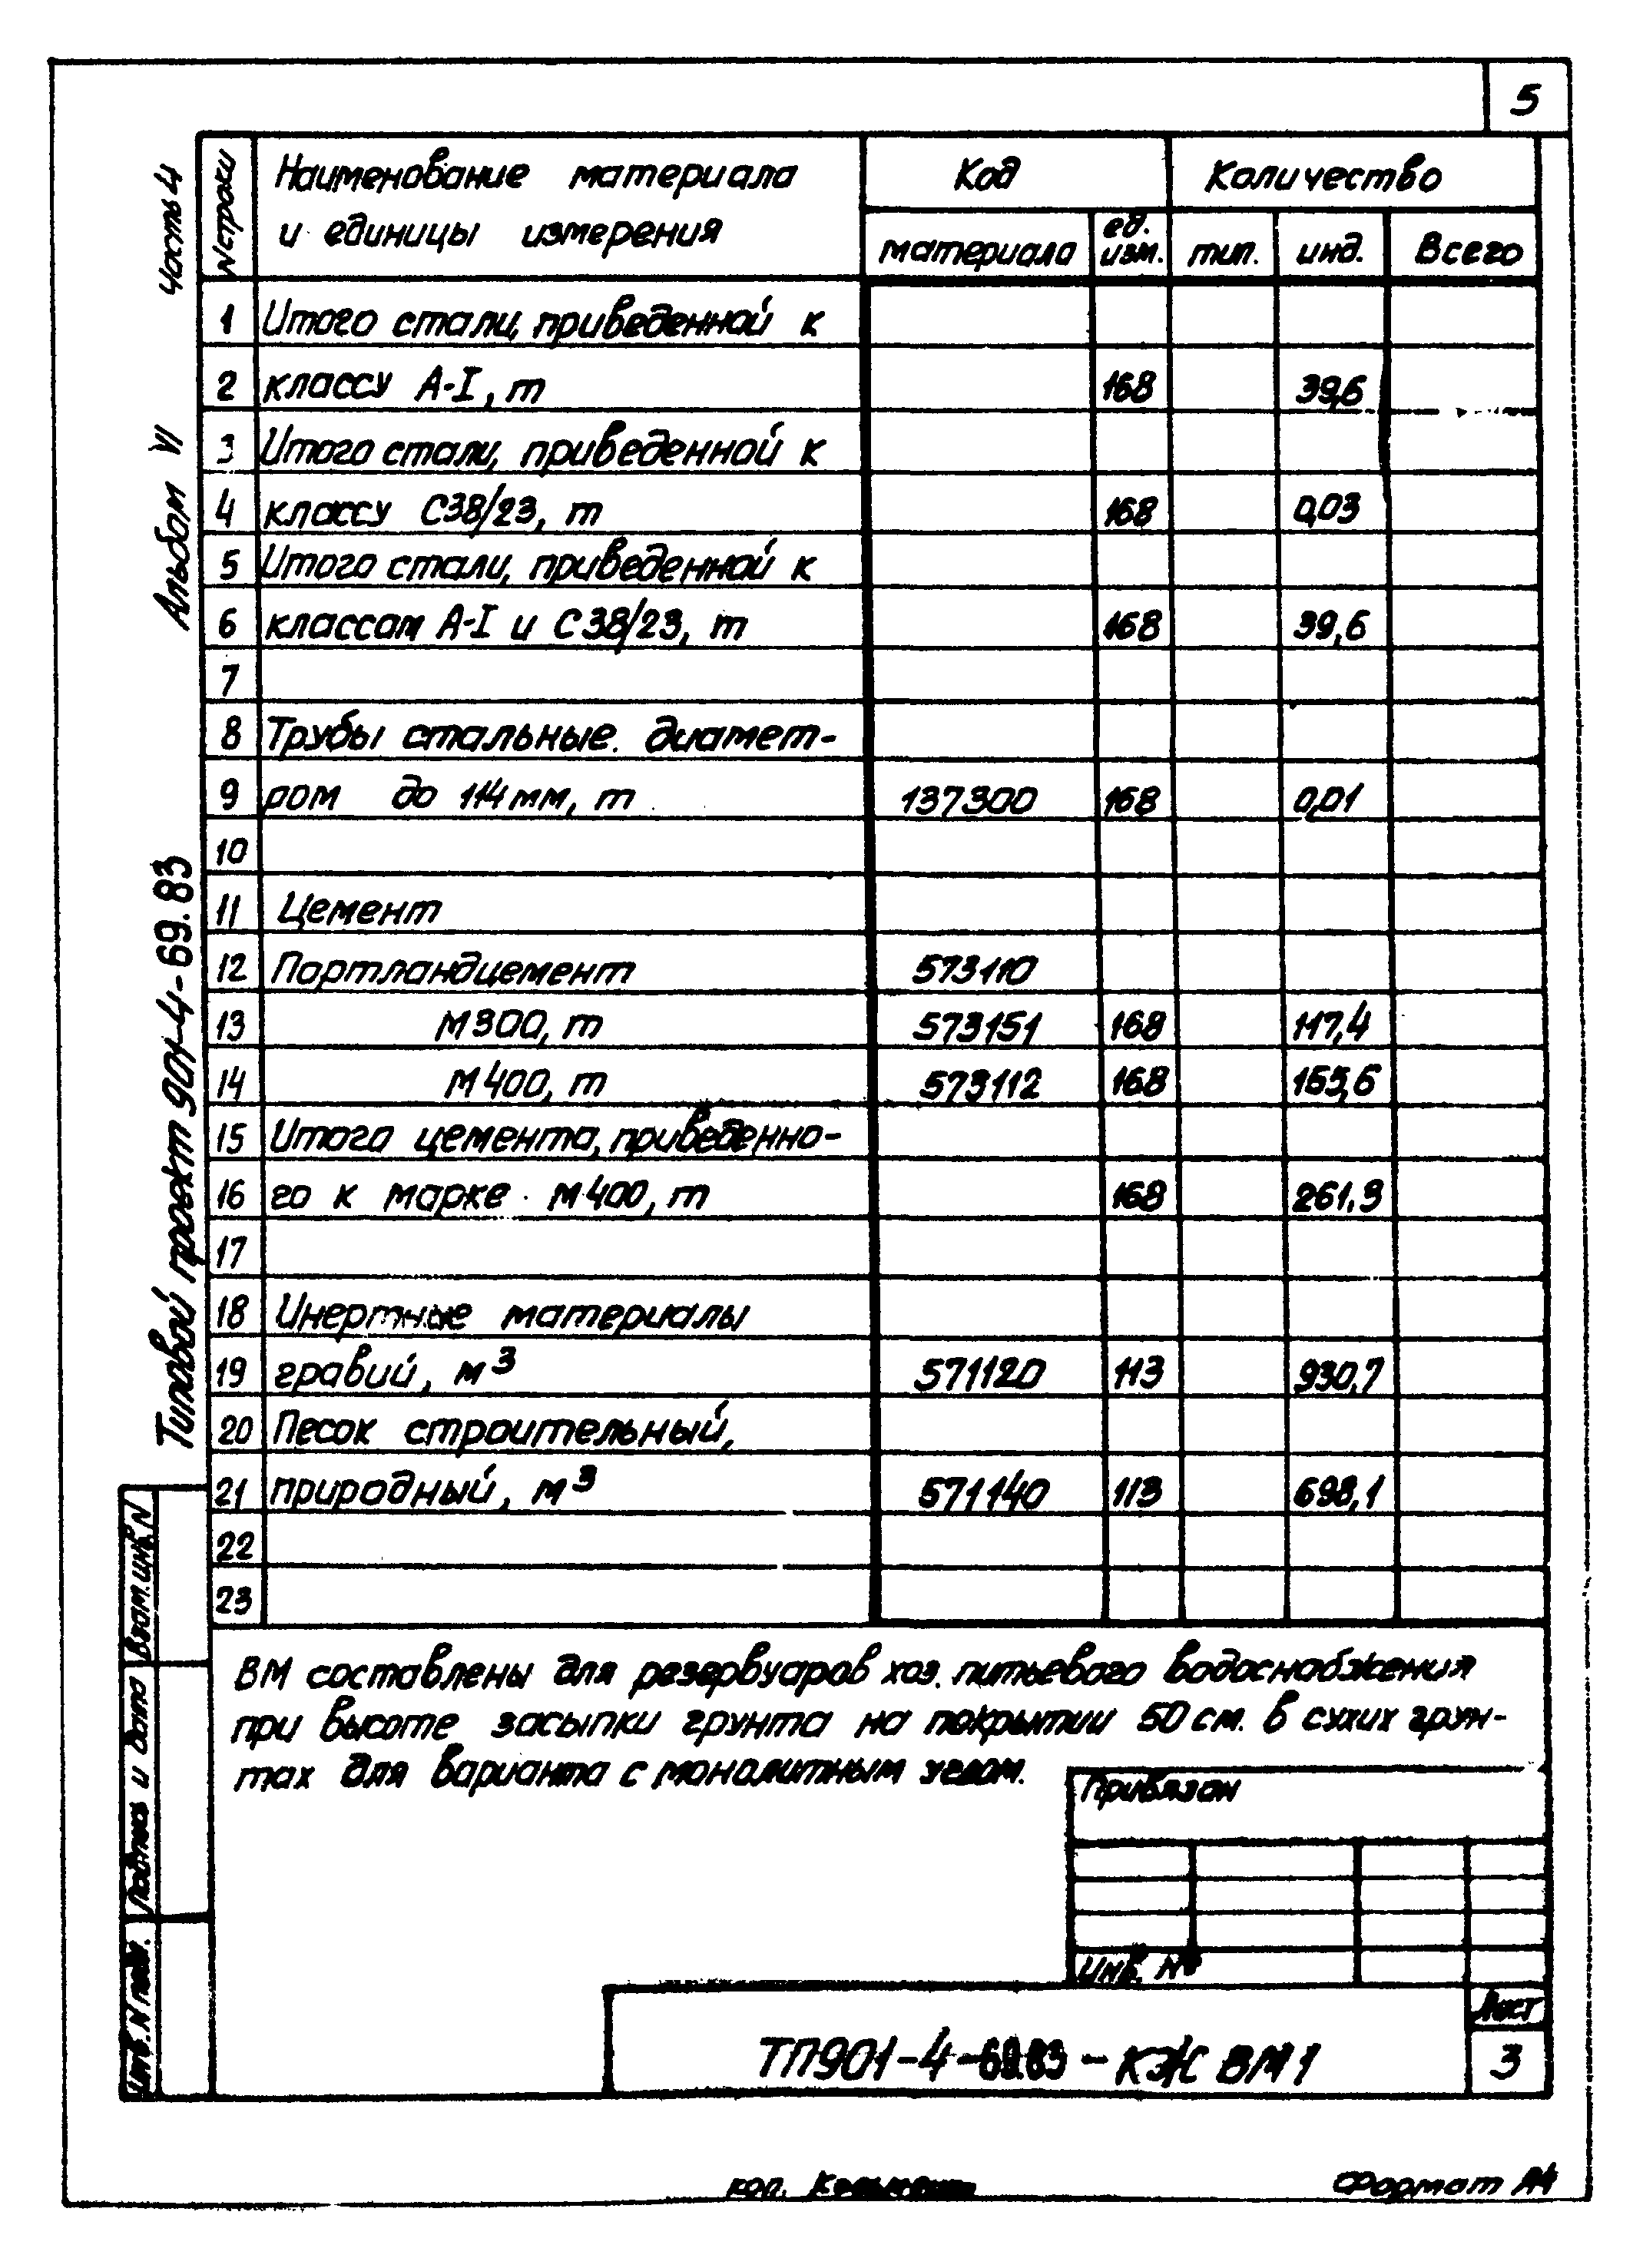 5
Часть 4
Альбом VI
Типовой проект 901-4-69.83
N строки
Наименование материала
и единицы измерения
Код
Количество
материала
ед. изм.
тип.
инд.
Всего
1 Итого стали, приведенной к
2 классу А-I, т 168 39,6
3 Итого стали, приведенной к
4 классу С38/23, т 168 0,03
5 Итого стали, приведенной к
6 классам А-I и С38/23, т 168 39,6
7
8 Трубы стальные. диамет-
9 ром до 114мм, т 137300 168 0,01
10
11 Цемент
12 Портландцемент 573110
13 М300, т 573151 168 117,4
14 М400, т 573112 168
15 Итого цемента, приведенно-
16 го к марке М400, т 168 261,3
17
18 Инертные материалы
19 гравий, м³ 571120 113 930,7
20 Песок строительный,
21 природный, м³ 571140 113
22
23
ВМ составлены для резервуаров хоз. питьевого водоснабжения
при высоте засыпки грунта на покрытии 50 см. в сухих грун-
тах для варианта с монолитным углом.
Привязан
Инв. №
Взам. инв. N
Подпись и дата
Инв. N подл.
ТП901-4-69.83 - КЖ ВМ1
Лист
3
коп.
Формат А4